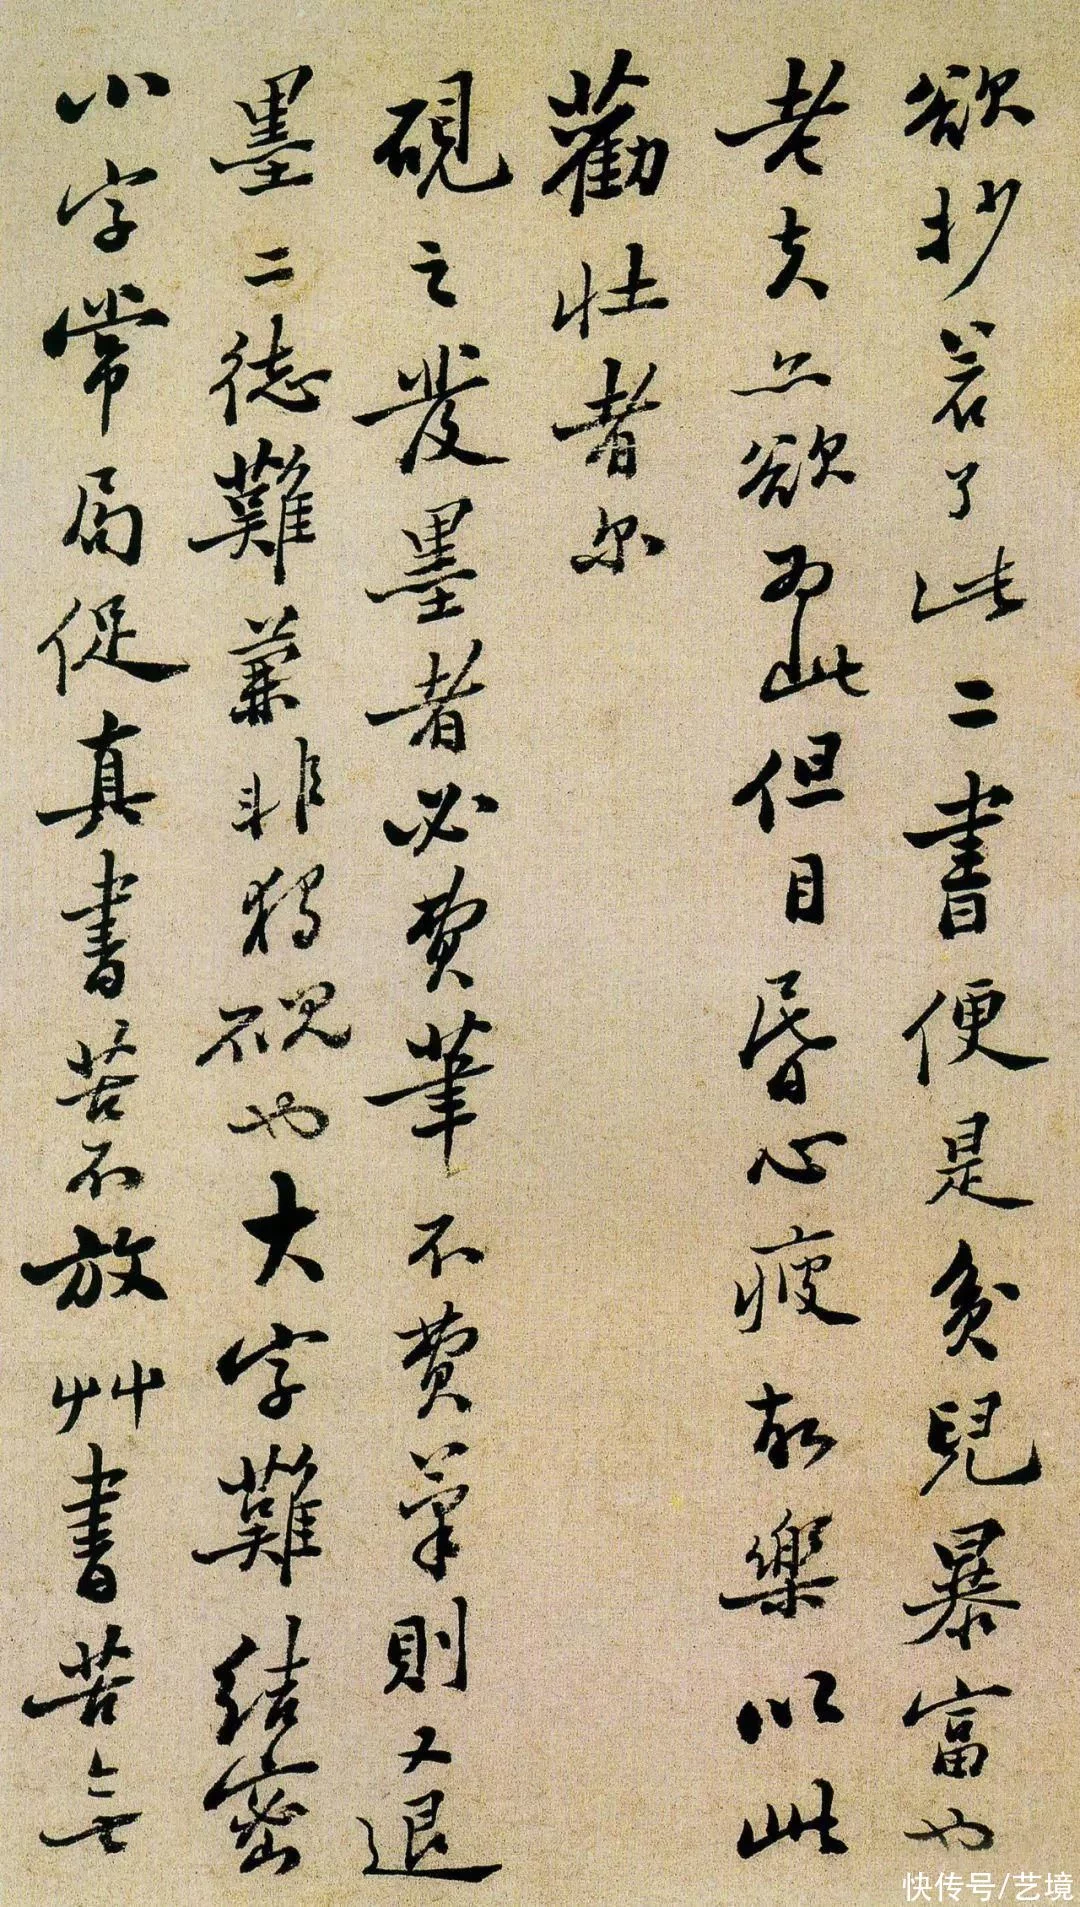 欲抄若了此二書便是貧兒暴富也
老夫亦欲為此但目昏心疲故樂以此
勸壯者尔
硯之發墨者必費筆不費筆則又退
墨二德難兼非獨硯也大字難結密
小字常局促真書苦不放艸書苦无
快传号/艺境